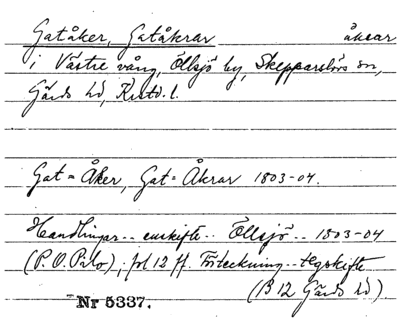 Gatåker, Gatåkrar åkrar
i Västre vång, Öllsjö by, Skepparslövs sn,
Gärds hd, Krstd. l.
Gat=Åker, Gat=Åkrar 1803-04.
Handlingar.. enskifte.. Öllsjö.. 1803-04
(P. O. Palo); fol 12 ff. Förteckning.. tegskifte
(B 12 Gärds hd).
Nr 5337.